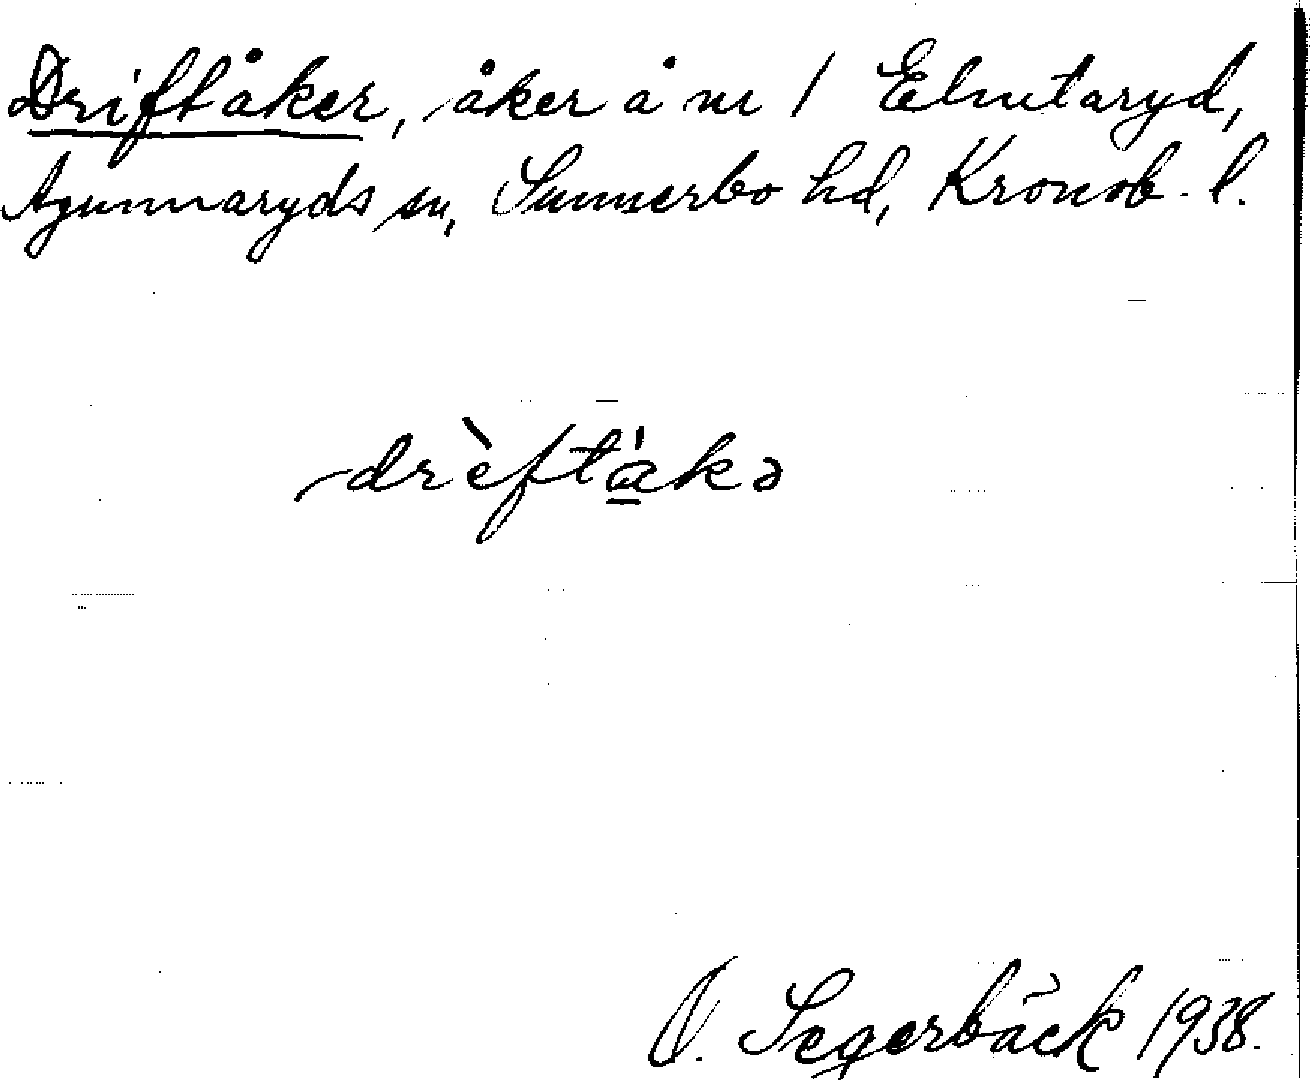 Driftåker, åker å nr 1 Elmtaryd,
Agunnaryds sn, Sunnerbo hd, Kronob. l.
drèftàkə
O. Segerbäck 1938.